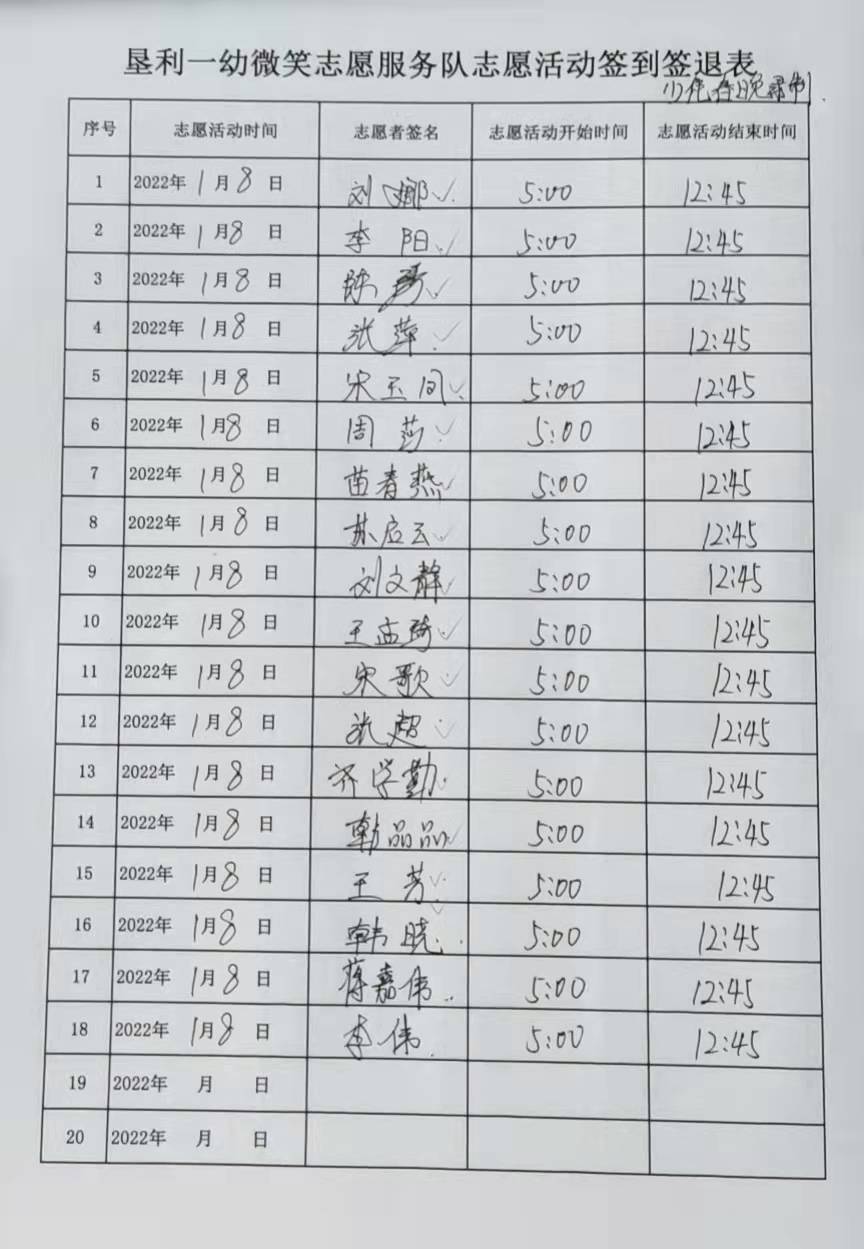 垦利一幼微笑志愿服务队志愿活动签到签退表
少儿春晚录制
序号 志愿活动时间 志愿者签名 志愿活动开始时间 志愿活动结束时间
1 2022年 1月 8 日 刘娜 5:00 12:45
2 2022年 1月 8 日 李阳 5:00 12:45
3 2022年 1月 8 日 5:00 12:45
4 2022年 1月 8 日 张萍 5:00 12:45
5 2022年 1月 8 日 宋玉 5:00 12:45
6 2022年 1月 8 日 周莎 5:00 12:45
7 2022年 1月 8 日 苗春燕 5:00 12:45
8 2022年 1月 8 日 苏启云 5:00 12:45
9 2022年 1月 8 日 刘文静 5:00 12:45
10 2022年 1月 8 日 王孟琦 5:00 12:45
11 2022年 1月 8 日 宋歌 5:00 12:45
12 2022年 1月 8 日 张超 5:00 12:45
13 2022年 1月 8 日 齐学勤 5:00 12:45
14 2022年 1月 8 日 韩品品 5:00 12:45
15 2022年 1月 8 日 王芳 5:00 12:45
16 2022年 1月 8 日 韩晓 5:00 12:45
17 2022年 1月 8 日 蒋嘉伟 5:00 12:45
18 2022年 1月 8 日 李伟 5:00 12:45
19 2022年 月 日
20 2022年 月 日